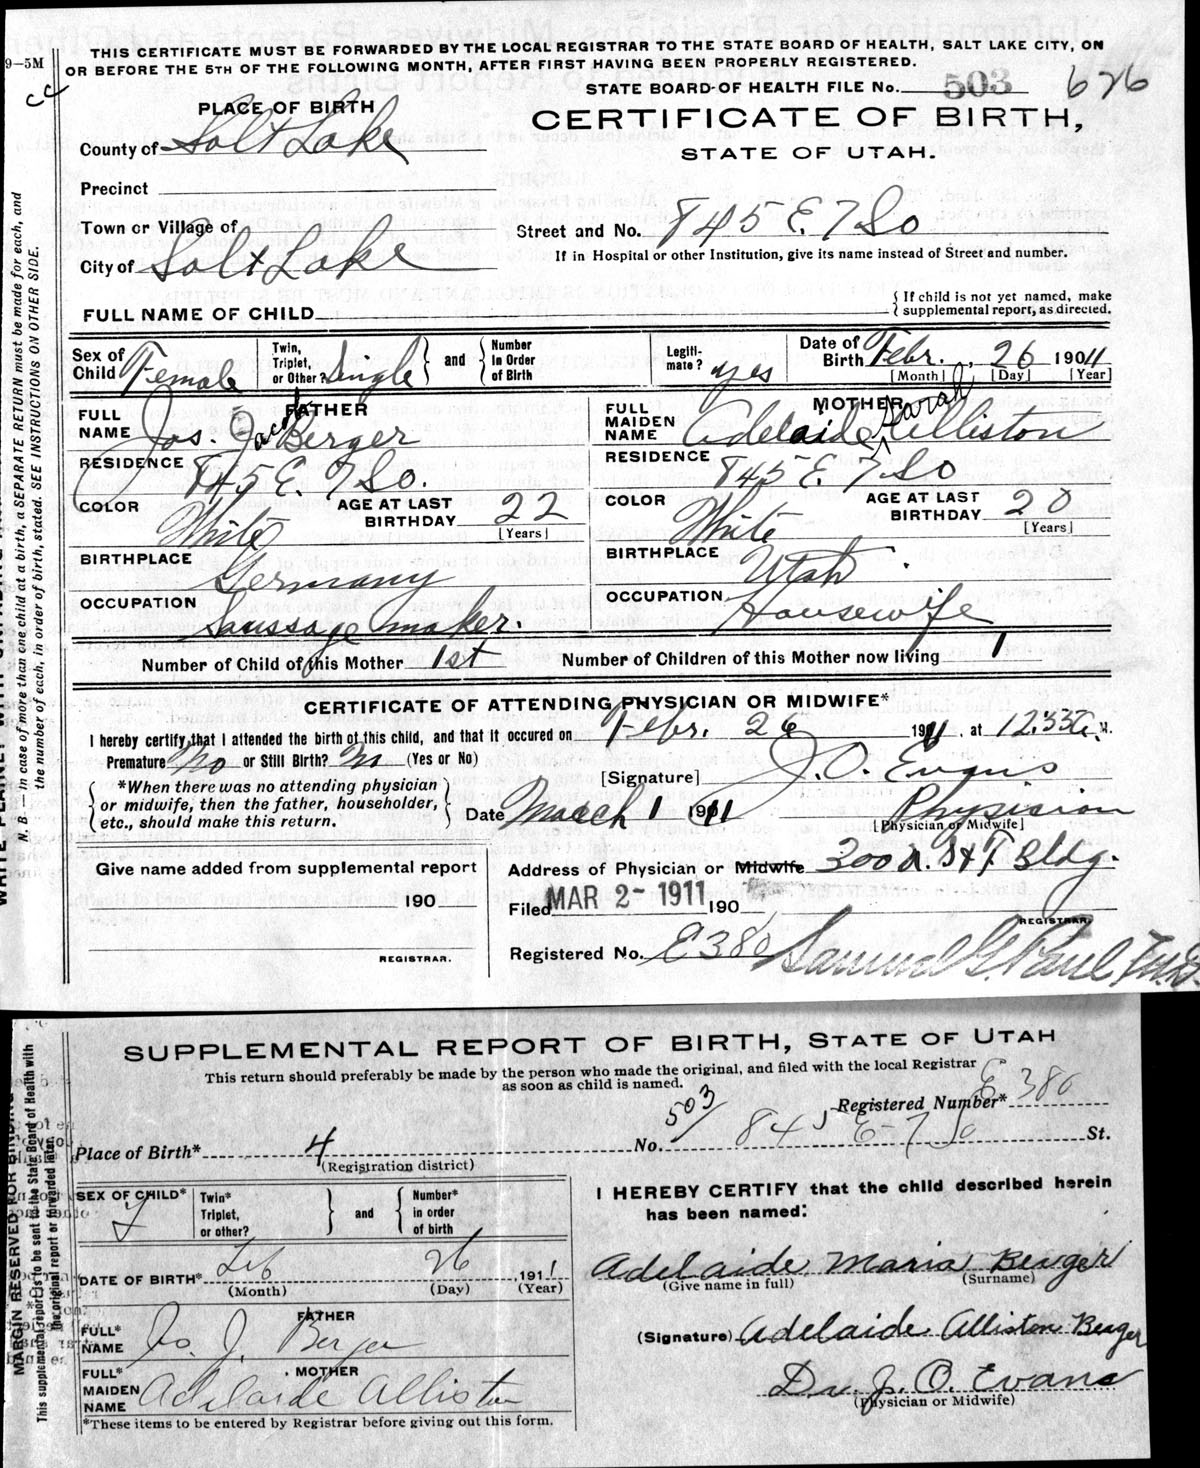 THIS CERTIFICATE MUST BE FORWARDED BY THE LOCAL REGISTRAR TO THE STATE BOARD OF HEALTH, SALT LAKE CITY, ON
OR BEFORE THE 5TH OF THE FOLLOWING MONTH, AFTER FIRST HAVING BEEN PROPERLY REGISTERED.
9—5M
STATE BOARD OF HEALTH FILE No. 503 626
PLACE OF BIRTH
CERTIFICATE OF BIRTH,
STATE OF UTAH.
County of Salt Lake
Precinct
Town or Village of
Street and No. 845 E. 7 So
City of Salt Lake
If in Hospital or other Institution, give its name instead of Street and number.
FULL NAME OF CHILD
{If child is not yet named, make supplemental report, as directed.
Sex of Child Female
Twin, Triplet, or Other? Single } and { Number in Order of Birth
Legiti-mate? yes
Date of Birth Febr. , 26 1911
[Month] [Day] [Year]
FATHER
FULL NAME Jos. Jacob Berger
MOTHER
FULL MAIDEN NAME Adelaide Sarah Alliston
RESIDENCE 845 E. 7 So.
RESIDENCE 845 E. 7 So
COLOR White
AGE AT LAST BIRTHDAY 22 [Years]
COLOR White
AGE AT LAST BIRTHDAY 20 [Years]
BIRTHPLACE Germany
BIRTHPLACE Utah
OCCUPATION Saussage maker.
OCCUPATION Housewife
Number of Child of this Mother 1st
Number of Children of this Mother now living 1
CERTIFICATE OF ATTENDING PHYSICIAN OR MIDWIFE*
I hereby certify that I attended the birth of this child, and that it occured on Febr. 26 1911, at 12:33 a. M.
Premature No or Still Birth? No (Yes or No)
[Signature] J. O. Evans
*When there was no attending physician
or midwife, then the father, householder,
etc., should make this return.
Date March 1 1911
Physision
[Physician or Midwife]
Give name added from supplemental report
190
REGISTRAR.
Address of Physician or Midwife 300 D. S & T Bldg.
Filed MAR 2- 1911 190
REGISTRAR.
Registered No. E380 Samuel G. Paul M.D.
N. B.—In case of more than one child at a birth, a SEPARATE RETURN must be made for each, and
the number of each, in order of birth, stated. SEE INSTRUCTIONS ON OTHER SIDE.
SUPPLEMENTAL REPORT OF BIRTH, STATE OF UTAH
This return should preferably be made by the person who made the original, and filed with the local Registrar
as soon as child is named.
503 Registered Number* E 380
Place of Birth* 4 No. 845 E-7 So St.
(Registration district)
SEX OF CHILD* F
Twin* Triplet, or other? } and { Number* in order of birth
I HEREBY CERTIFY that the child described herein
has been named:
DATE OF BIRTH* Feb 26 , 1911
(Month) (Day) (Year)
Adelaide Maria Berger
(Give name in full) (Surname)
FATHER
FULL* NAME Jos. J. Berger
(Signature) Adelaide Alliston Berger
MOTHER
FULL* MAIDEN NAME Adelaide Alliston
Dr. J. O. Evans
(Physician or Midwife)
*These items to be entered by Registrar before giving out this form.
MARGIN RESERVED FOR BINDING
This supplemental report is to be sent to the State Board of Health with
the original report or forwarded later.